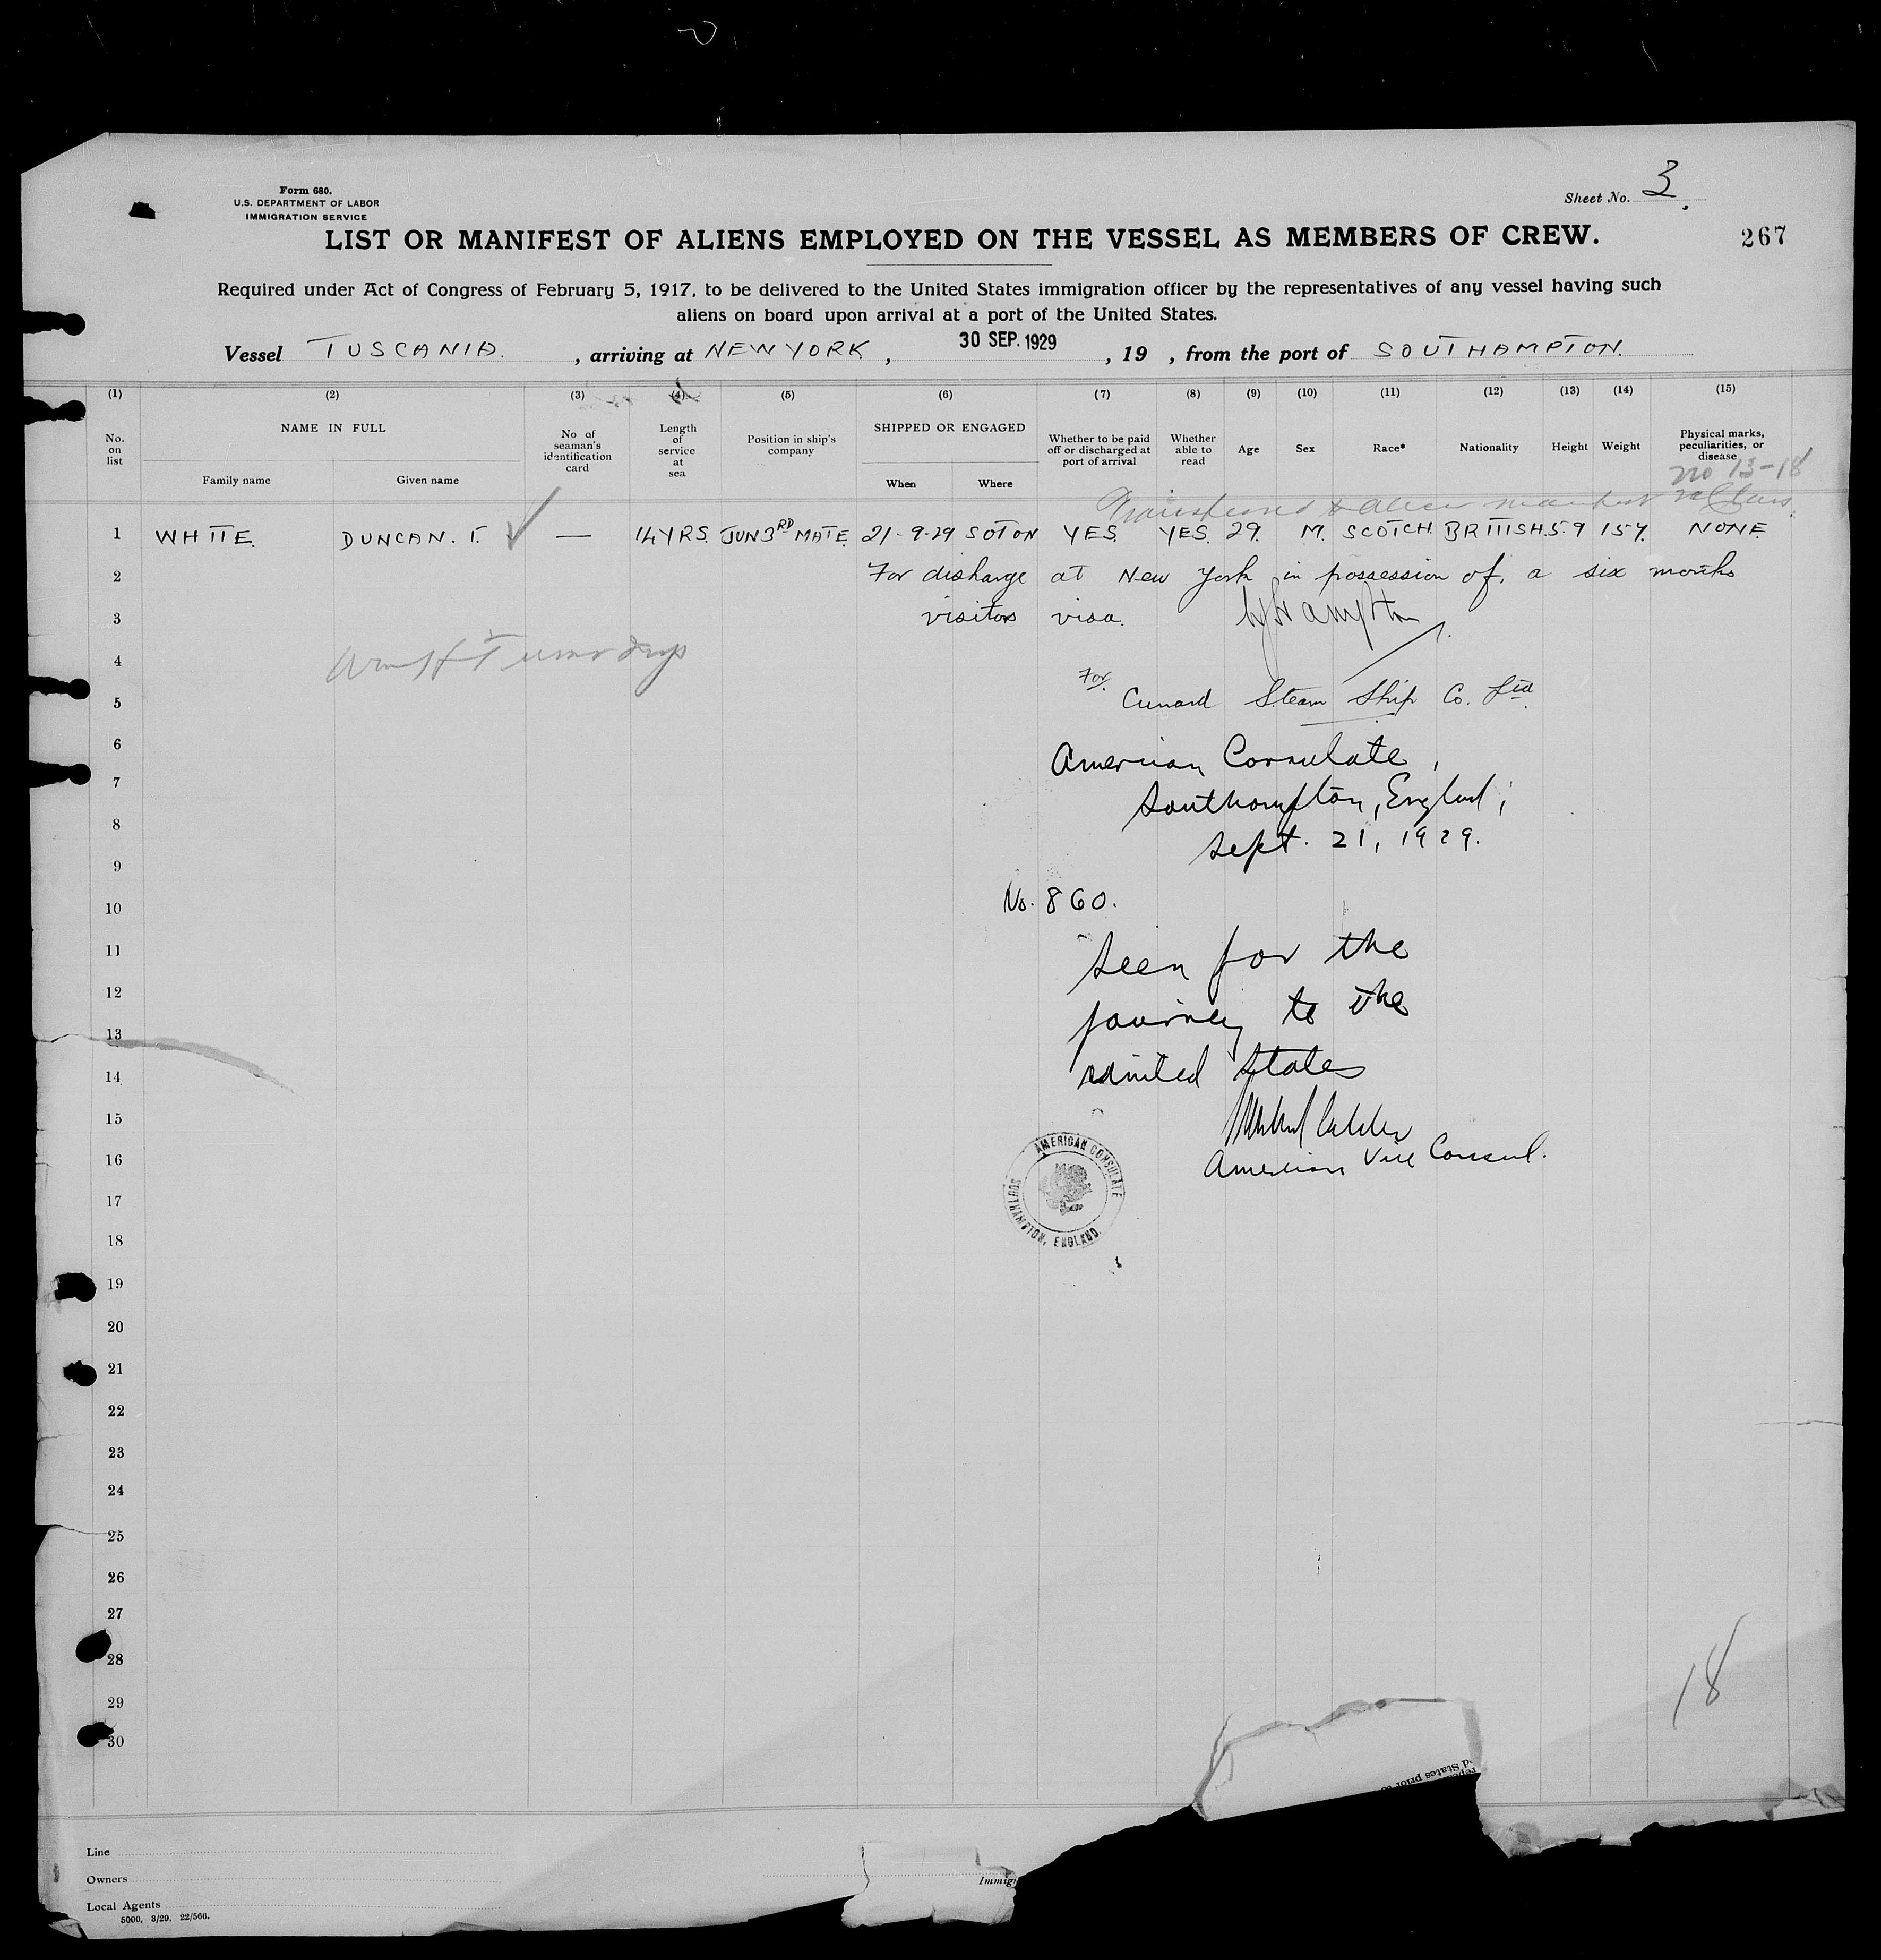 Form 680.
U.S. DEPARTMENT OF LABOR
IMMIGRATION SERVICE
Sheet No. 3.
LIST OR MANIFEST OF ALIENS EMPLOYED ON THE VESSEL AS MEMBERS OF CREW.
267
Required under Act of Congress of February 5, 1917, to be delivered to the United States immigration officer by the representatives of any vessel having such
aliens on board upon arrival at a port of the United States.
Vessel TUSCANIA. , arriving at NEW YORK , 30 SEP. 1929 , 19 , from the port of SOUTHAMPTON.
(1) (2) (3) (4) (5) (6) (7) (8) (9) (10) (11) (12) (13) (14) (15)
No. on list
NAME IN FULL
Family name
Given name
No of seaman's identification card
Length of service at sea
Position in ship's company
SHIPPED OR ENGAGED
When
Where
Whether to be paid off or discharged at port of arrival
Whether able to read
Age
Sex
Race*
Nationality
Height
Weight
Physical marks, peculiarities, or disease
no 13-18
Transferred to alien manifest
1 WHITE. DUNCAN. T. — 14 YRS. JUN 3RD MATE. 21-9-29 SOTON YES. YES. 29. M. SCOTCH. BRITISH. 5.9 157. NONE.
2 For discharge at New York in possession of. a six months
3 visitors visa.
4
For
5 Cunard Steam Ship Co. Ltd.
6 American Consulate,
7 Southampton, England;
8 Sept. 21, 1929.
9
10 No. 860.
11 Seen for the
12 journey to the
13
14 United States
15
16 American Vice Consul.
AMERICAN CONSULATE
SOUTHAMPTON, ENGLAND.
17
18
19
20
21
22
23
24
25
26
27
28
18
29
30
d States prior to
Line
Owners
Immig
Local Agents
5000, 3/29. 22/566.